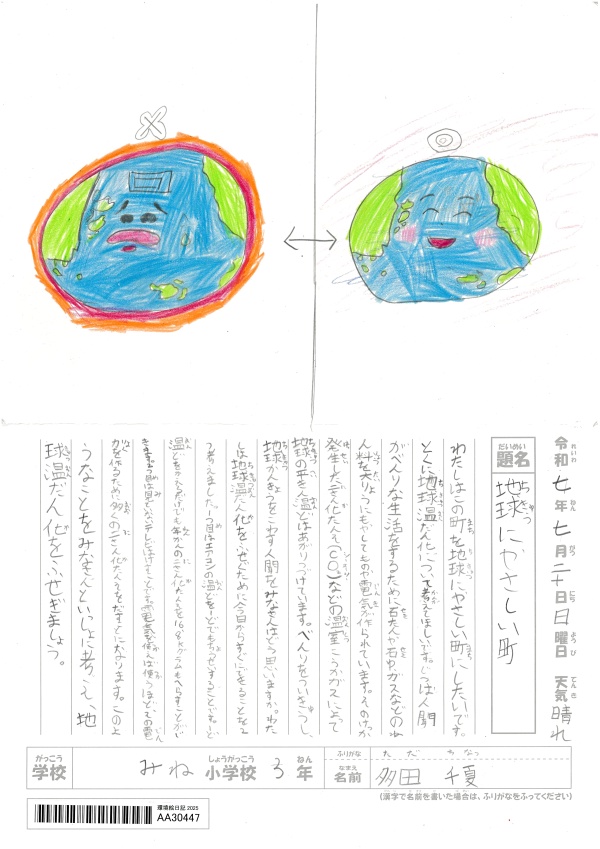 令和七年七月二十日日曜日 天気晴れ
題名 地球にやさしい町
わたしはこの町を地球にやさしい町にしたいです。
とくに地球温だん化について考えてほしいです。じつは人間
がべんりな生活をするために石たんや石油、ガスなどのねん
料を大りょうにもやしてものや電気が作られています。そのけっか
発生した二さん化たんそ(CO₂)などの温室こうかガスによって
地球の平きん温どはあがりつづけています。べんりをついきゅうし、
地球かんきょうをこわす人間をみなさんはどう思いますか。わた
しは地球温だん化をふせぐために今日からすぐにできることを二
つ考えました。一つ目はエアコンの温どを一どでもせっていすることです。一ど
温どをかえるだけでも年かんの二さん化たんそを16.8キログラムもへらすことがで
きます。二つ目は見ていないテレビはけすことです。電気は使えば使うほどその電
力を作るために多くの二さん化たんそをだすことになります。このよ
うなことをみなさんといっしょに考え、地
球温だん化をふせぎましょう。
学校 みね小学校 3年 名前 多田 千夏
ふりがな ただ ちなつ
(漢字で名前を書いた場合は、ふりがなをふってください)
環境絵日記 2025
AA30447